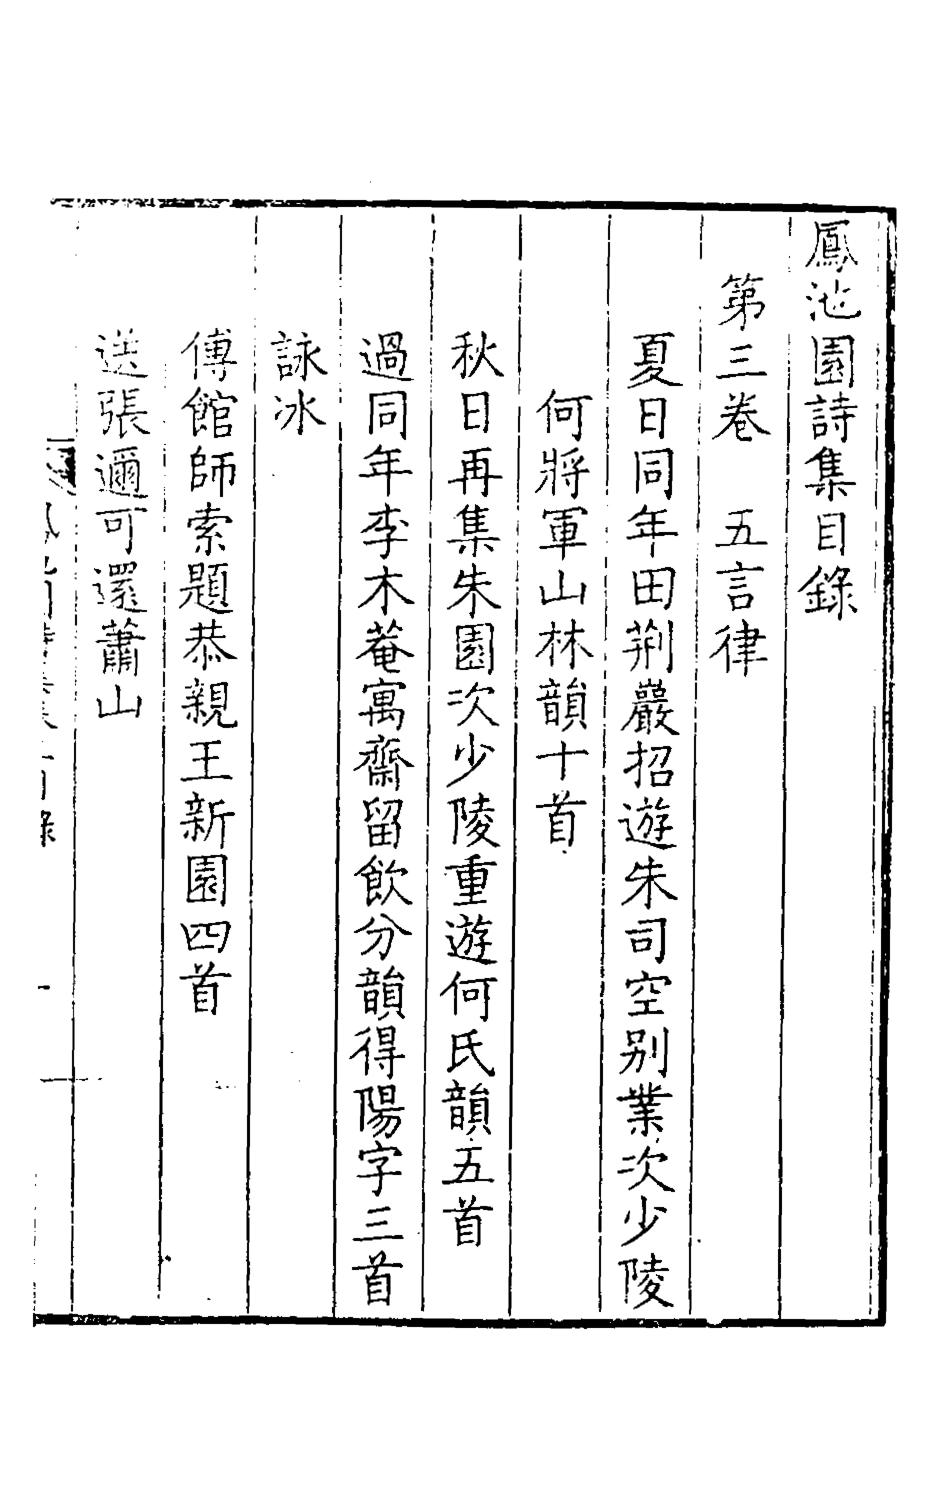 鳳池園詩集目錄
第三卷　五言律
夏日同年田荆巖招遊朱司空别業次少陵
何將軍山林韻十首
秋日再集朱園次少陵重遊何氏韻五首
過同年李木菴寓齋留飲分韻得陽字三首
詠冰
傅館師索題恭親王新園四首
送張邇可還蕭山